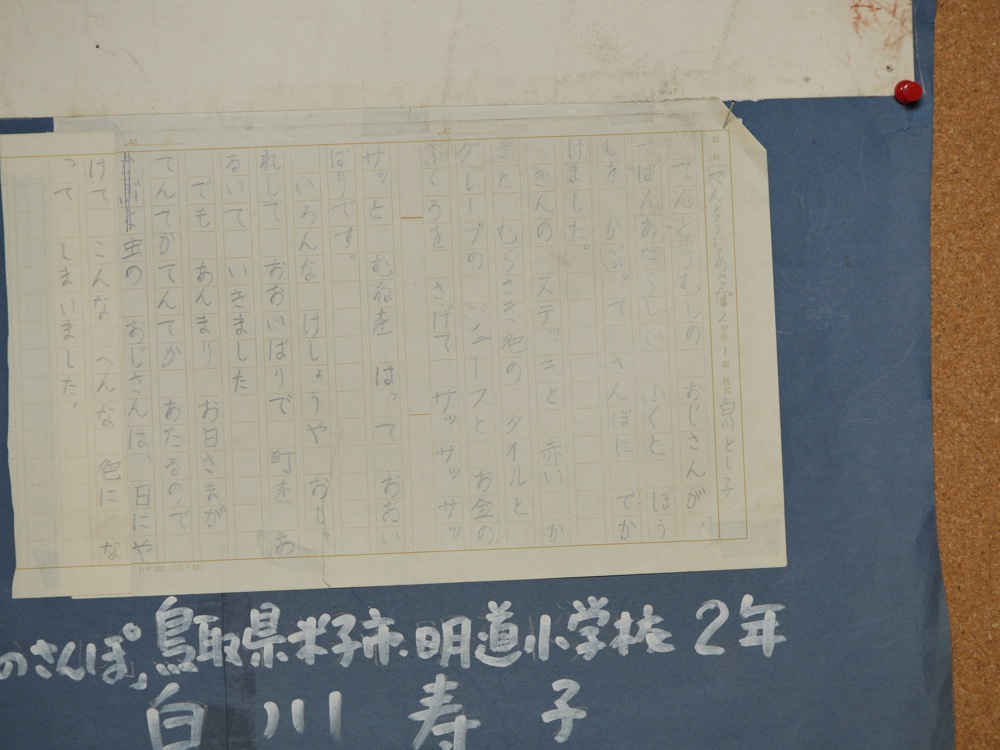 題目 てんとうむしのさんぽ 2学年1組 姓名 白川とし子
てんとうむしの おじさんが
ばんあたらしい ふくと ぼう
しを かぶって さんぽに でか
けました。
きんの ステッキと 赤い か
さと むらさき色の タオルと
グレープの ジュースと お金の
ふくろを さげて サッサッサッ
サッと むねを はって おおい
ばりです。
いろんな けしょうや おし
れして おおいばりで 町を あ
るいて いきました
でも あんまり お日さまが
てんてかてんてか あたるので
宝の おじさんは、日にや
けて こんな へんな 色に な
って しまいました。
のさんぽ」鳥取県米子市明道小学校2年
白川寿子